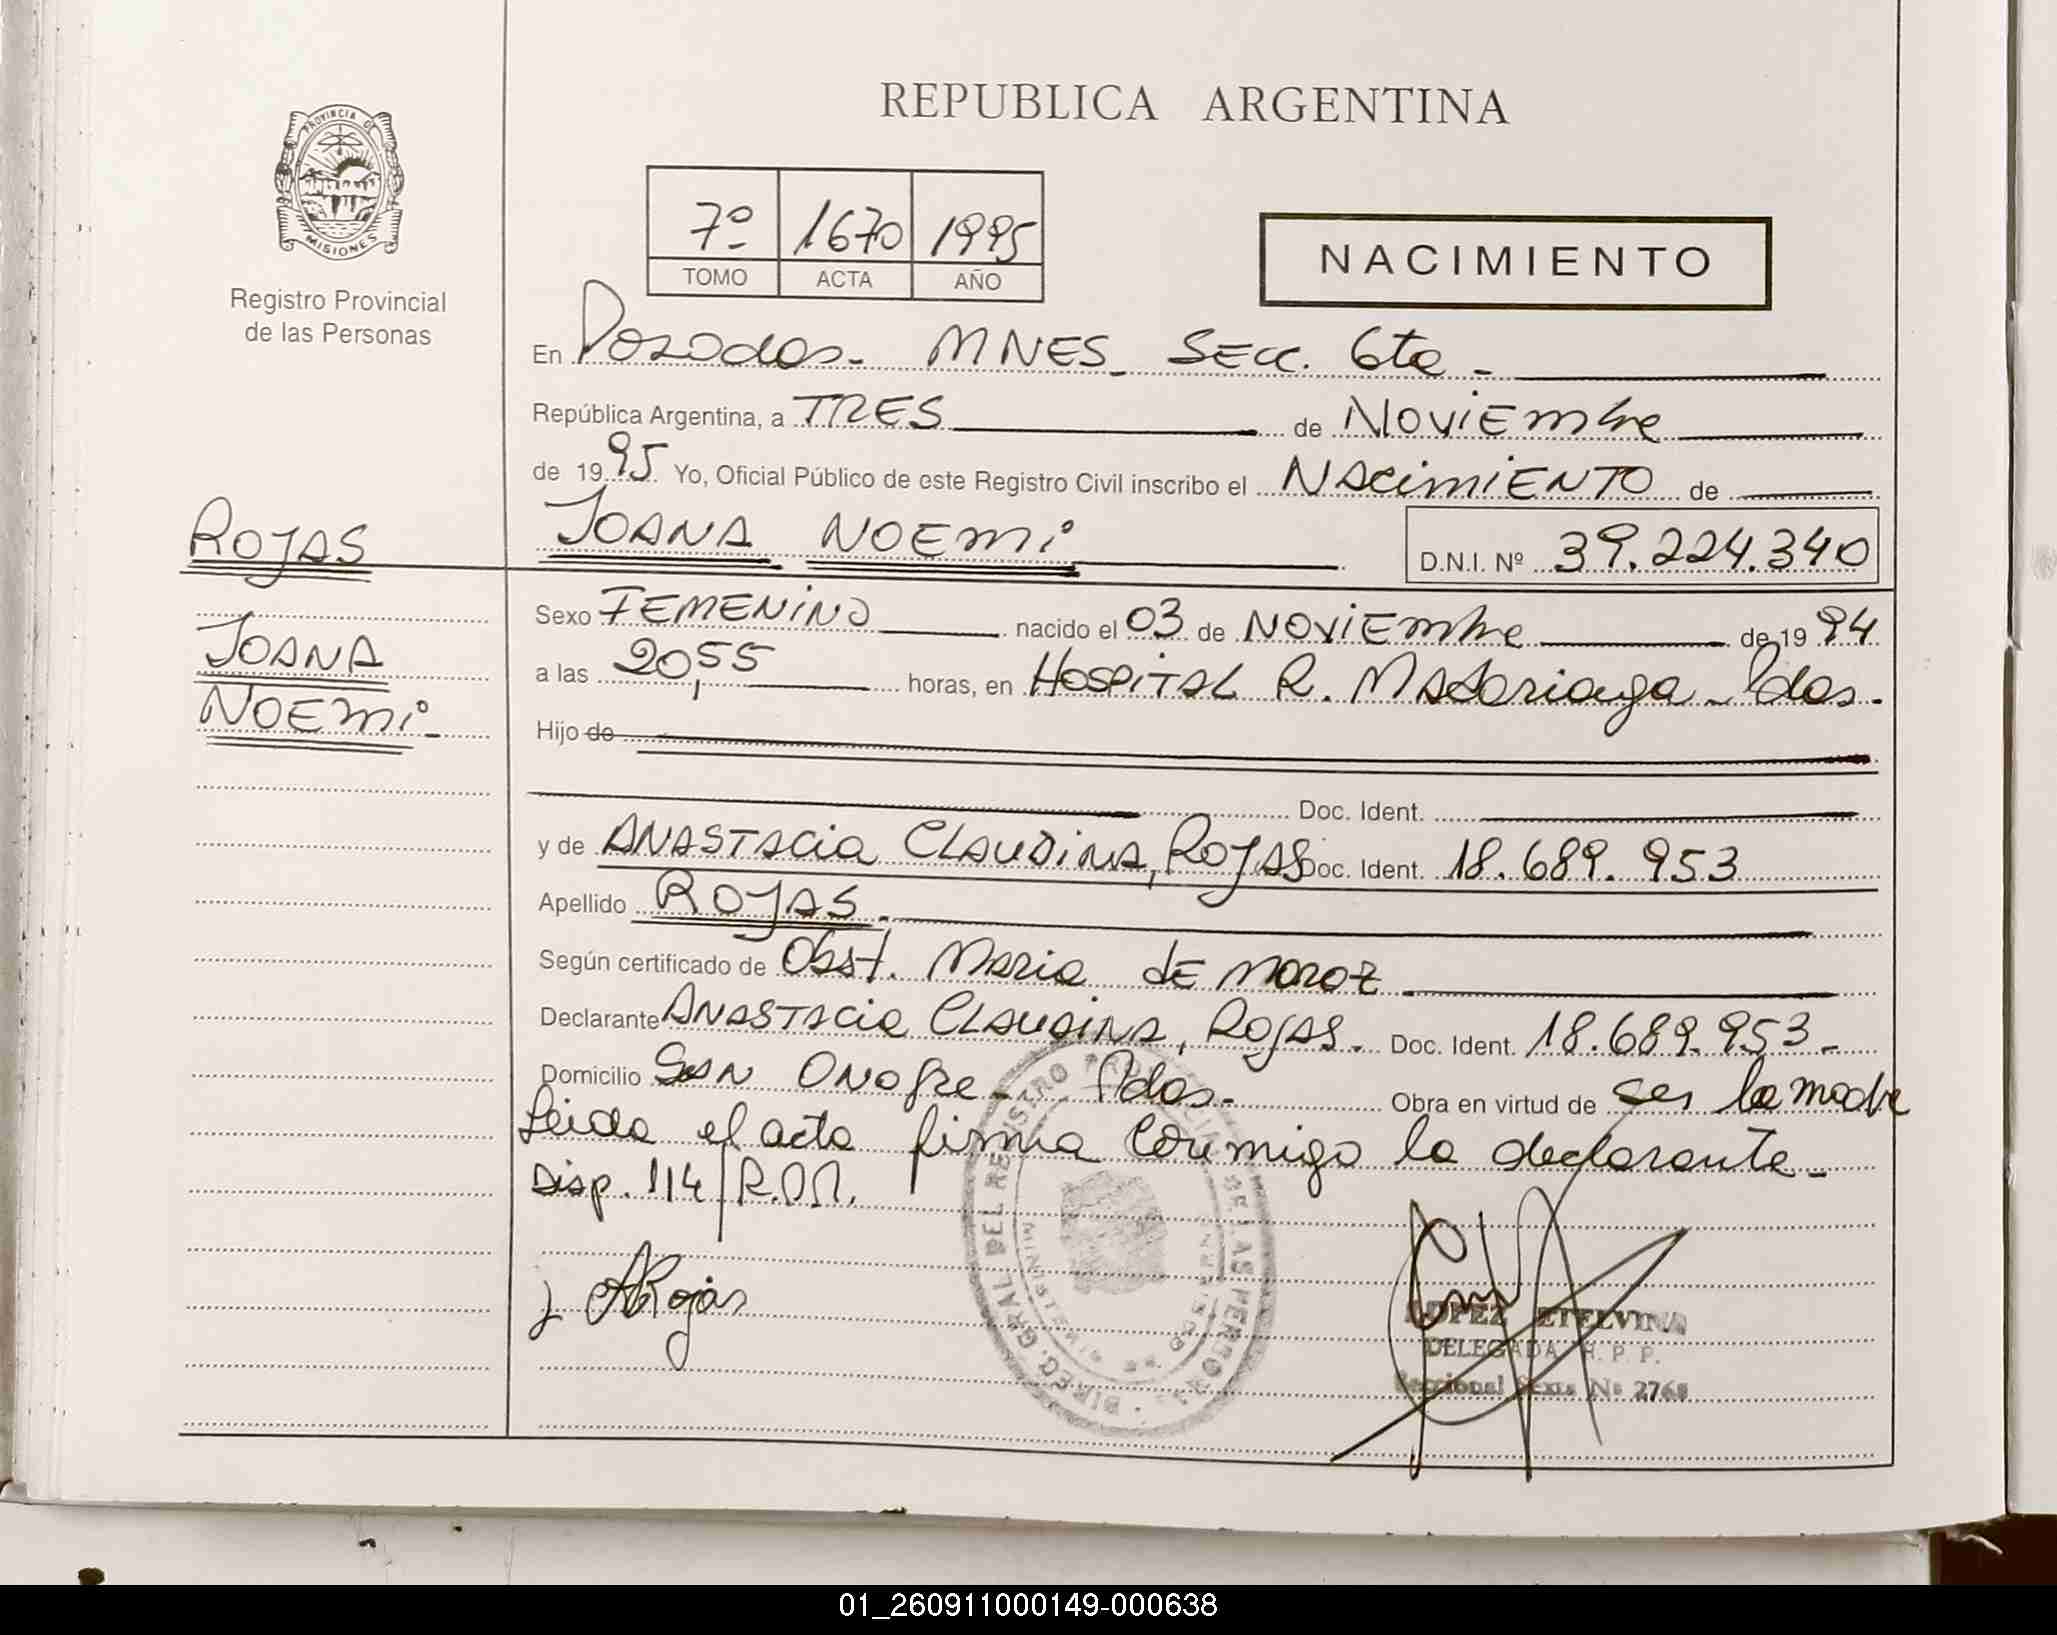 REPUBLICA ARGENTINA
PROVINCIA DE
MISIONES
Registro Provincial
de las Personas
7º 1670 1995
TOMO ACTA AÑO
NACIMIENTO
En Posadas - MNES - SECC. 6ta -
República Argentina, a TRES de NOVIEMbre
de 1995 Yo, Oficial Público de este Registro Civil inscribo el NACIMIENTO de
ROJAS
JOANA NOEMI D.N.I. Nº 39.224.340
JOANA
NOEMI -
Sexo FEMENINO nacido el 03 de NOVIEMbre de 1994
a las 20,55 horas, en HOSPITAL R. MADARIAGA - Pdas.
Hijo de
Doc. Ident.
y de ANASTACIA CLAUDINA, ROJAS Doc. Ident. 18.689.953
Apellido ROJAS.
Según certificado de Obst. Maria de Moroz
Declarante ANASTACIA CLAUDINA, ROJAS. Doc. Ident. 18.689.953 -
Domicilio SAN ONOFRE - Pdas. Obra en virtud de ser la madre
Leida el acta firma conmigo la declarante -
Disp. 114/R.P.P.
ARojas
DIREC. GRAL DEL REGISTRO PROVINCIAL DE LAS PERSONAS
LOPEZ ETELVINA
DELEGADA R. P. P.
Seccional Sexta Nº 2768
01_260911000149-000638